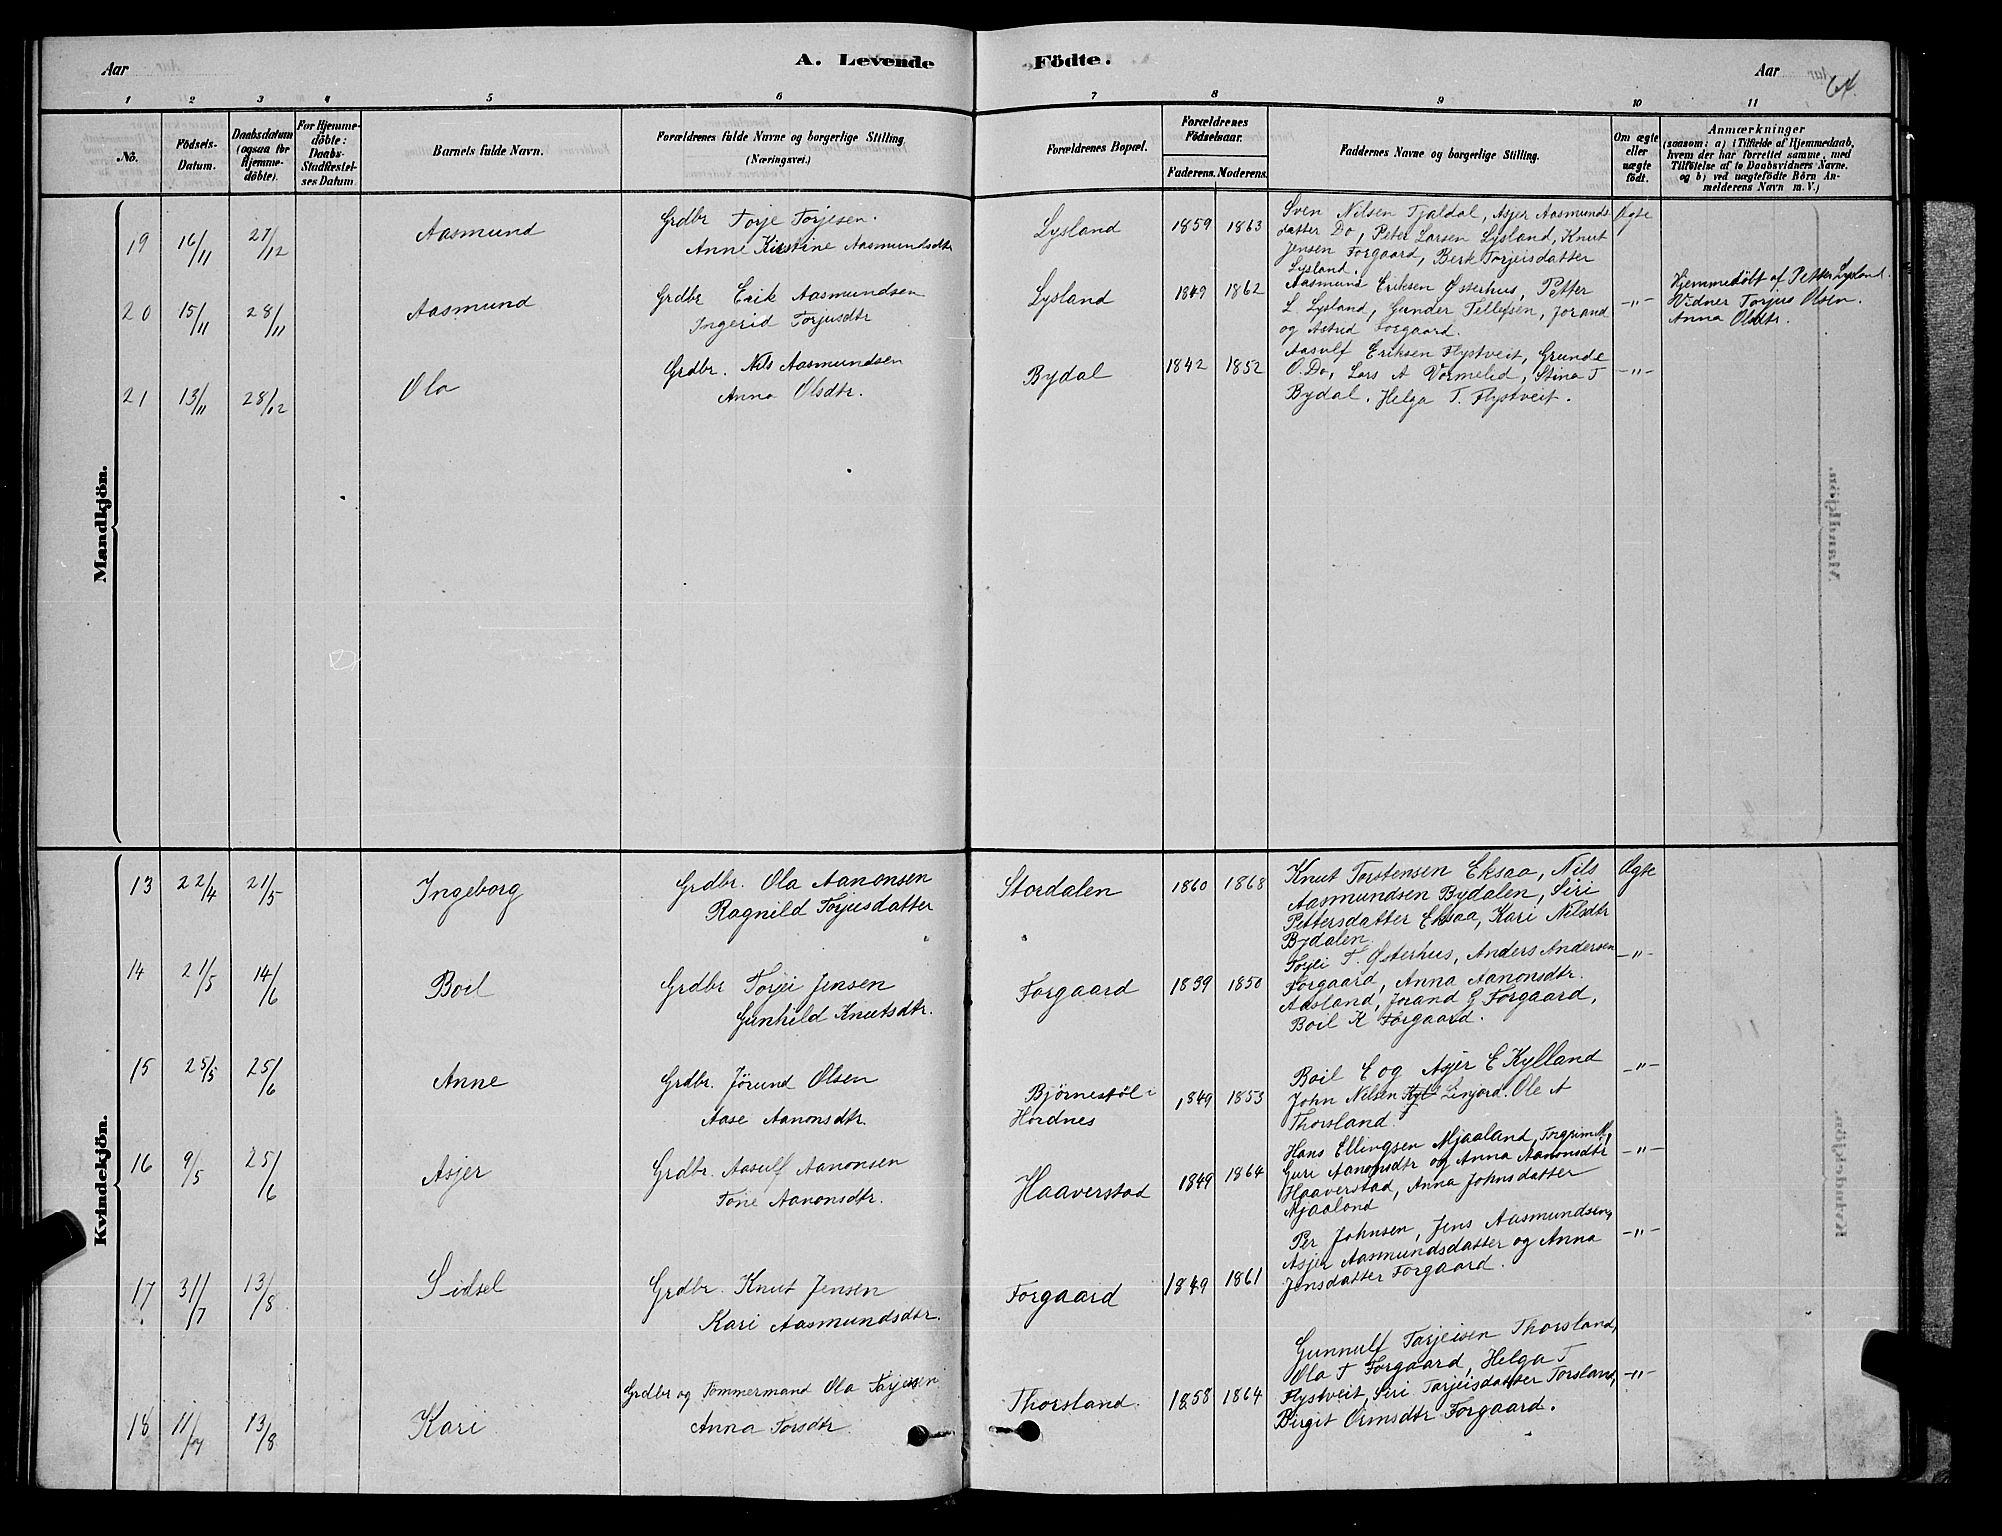 Aar
A. Levende Födte.
Aar
64.
1 2 3 4 5 6 7 8 9 10 11
No.
Födsels-Datum.
Daabsdatum (ogsaa for Hjemme-döbte).
For Hjemme-döbte: Daabs-Stadfæstel-ses Datum.
Barnets fulde Navn.
Forældrenes fulde Navne og borgerlige Stilling (Næringsvei.)
Forældrenes Bopæl.
Forældrenes Födselsaar.
Faderens. Moderens.
Faddernes Navne og borgerlige Stilling.
Om ægte eller uægte födt.
Anmærkninger
(saasom: a) i Tilfælde af Hjemmedaab,
hvem der har forrettet samme, med
Tilföielse af to Daabsvidners Navne.
og b) ved uægtefödte Börn An-
melderens Navn m. V.)
Mandkjön.
19 16/11 27/12 Aasmund
Grdbr Torje Torjesen.
Anne Kirstine Aasmundsdtr
Lysland 1859 1863
Sven Nilsen Fjaldal, Asjer Aasmunds
datter Do, Peter Larsen Lysland, Knut
Jensen Forgaard, Berk Torjeisdatter
Lysland.
Ægte
20 15/11 28/11 Aasmund
Grdbr Erik Aasmundsen
Ingerid Torjusdtr
Lysland 1849 1862
Aasmund Eriksen Østerhus, Petter
L Lysland, Gunder Tellefsen, Jorand
og Astrid Forgaard.
-"-
Hjemmedøbt af Petter Lysland.
Vidner Torjus Olsen.
Anna Olsdtr.
21 13/11 28/12 Ola
Grdbr. Nils Aasmundsen
Anna Olsdtr.
Bydal 1842 1852
Aasulf Eriksen Flystveit, Grunde
O. Do, Lars A Vormelid, Stina T
Bydal. Helga T. Flystveit.
-"-
Kvindekjön.
13 22/4 21/5 Ingeborg
Grdbr. Ola Aanonsen
Ragnild Torjusdatter
Stordalen 1860 1868
Knut Torstensen Eksaa, Nils
Aasmundsen Bydalen, Siri
Pettersdatter Eksaa, Kari Nilsdtr
Bydalen
Ægte
14 21/5 14/6 Boil
Grdbr Torjei Jensen
Gunhild Knutsdtr.
Forgaard 1859 1850
Torjei T. Østerhus, Anders Andersen
Forgaard, Anna Aanonsdtr.
Aasland, Jorand G Forgaard,
Boil K Forgaard.
-"-
15 25/5 25/6 Anne
Grdbr. Jörund Olsen
Aase Aanonsdtr.
Bjørnestøl i
Hordnes
1849 1853
Boil E og Asjer E Kylland
John Nilsen Linjord. Ole A
Thorsland.
-"-
16 9/5 25/6 Asjer
Grdbr. Aasulf Aanonsen
Tone Aanonsdtr.
Haaverstad 1849 1864
Hans Ellingsen Mjaaland, Torgrim M,
Guri Aanonsdtr og Anna Aanonsdtr
Haaverstad, Anna Johnsdatter
Mjaaland
-"-
17 31/7 13/8 Sidsel
Grdbr. Knut Jensen
Kari Aasmundsdtr.
Forgaard 1849 1861
Per Johnsen, Jens Aasmundsen,
Asjer Aasmundsdatter og Anna
Jensdatter Forgaard.
-"-
18 11/7 13/8 Kari
Grdbr og Tømmermand Ola Tarjeisen
Anna Torsdtr.
Thorsland. 1858 1864
Gunnulf Tarjeisen Thorsland,
Ola T Forgaard, Helga T
Flystveit, Siri Tarjeisdatter Torsland,
Birgit Ormsdtr Forgaard.
-"-